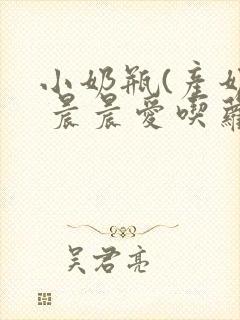 小奶瓶(產奶
晨晨愛喫蘿
吴君亮